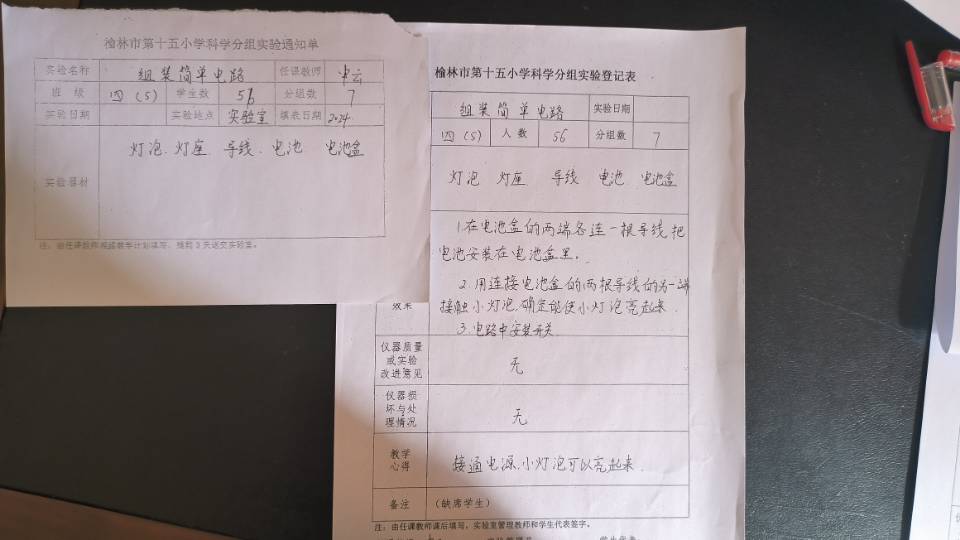 榆林市第十五小学科学分组实验通知单
实验名称 组装简单电路 任课教师
班 级 四(5) 学生数 56 分组数 7
实验日期 实验地点 实验室 填表日期 2024.
灯泡、灯座 导线、电池 电池盒
实验器材
注：由任课教师根据教学计划填写，提前3天送交实验室。
榆林市第十五小学科学分组实验登记表
组装简单电路 实验日期
四(5) 人数 56 分组数 7
灯泡 灯座 导线 电池 电池盒
1.在电池盒的两端各连一根导线把
电池安装在电池盒里。
2.用连接电池盒的两根导线的另一端
接触小灯泡,确定能使小灯泡亮起来.
效果
3.电路中安装开关
仪器质量
或实验
改进意见
无
仪器损
坏与处
理情况
无
教学
心得
接通电源,小灯泡可以亮起来.
备注 (缺席学生)
注：由任课教师课后填写，实验室管理教师和学生代表签字。